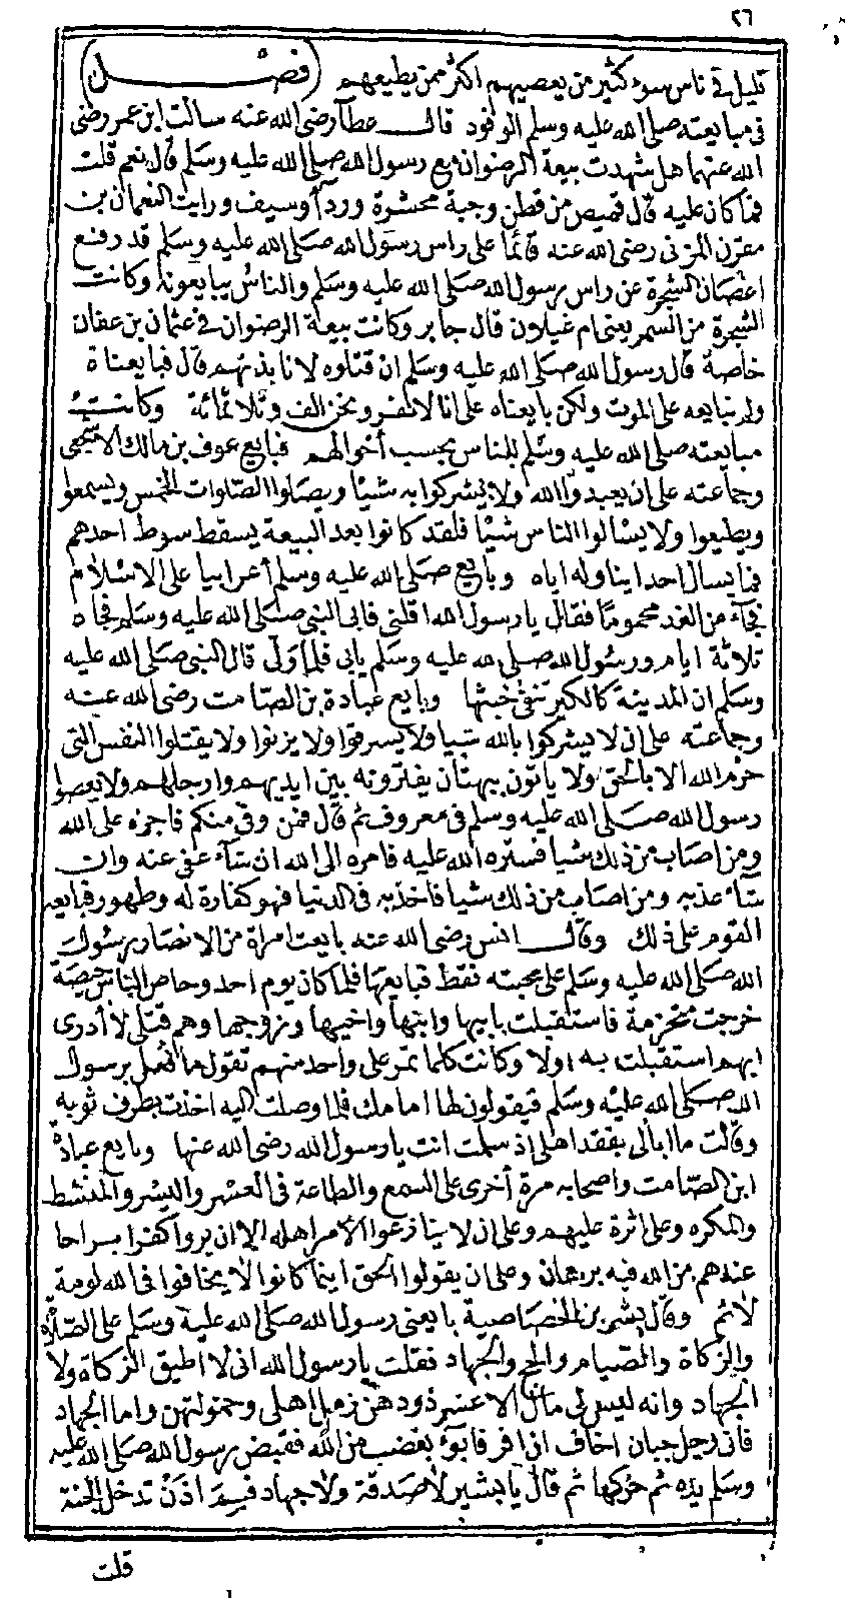 ٢٦
قليل في ناس سوء كثير من يعصيهم اكثر ممن يطيعهم (فصل)
في مبايعته صلى الله عليه وسلم الوفود قال عطآ رضي الله عنه سالت ابن عمر رضي
الله عنهما هل شهدت بيعة الرضوان مع رسول الله صلى الله عليه وسلم قال نعم قلت
فما كان عليه قال قميص من قطن وجبة محشوة وردآ وسيف ورايت النعمان بن
مقرن المزني رضي الله عنه قائما على راس رسول الله صلى الله عليه وسلم قد رفع
اغصان الشجرة عن راس رسول الله صلى الله عليه وسلم والناس يبايعونه وكانت
الشجرة من السمر يعني ام غيلان قال جابر وكانت بيعة الرضوان في عثمان بن عفان
خاصة قال رسول الله صلى الله عليه وسلم ان قتلوه لانابذنهم قال فبايعناه
ولم نبايعه على الموت ولكن بايعناه على انا لانفر ونحن الف وثلاثمائة وكانت
مبايعته صلى الله عليه وسلم للناس بحسب أحوالهم فبايع عوف بن مالك الاشجعي
وجماعته على ان يعبدوا الله ولا يشركوا به شيئا ويصلوا الصلوات الخمس ويسمعوا
ويطيعوا ولا يسالوا الناس شيئا فلقد كانوا بعد البيعة يسقط سوط احدهم
فما يسال احدا يناوله اياه وبايع صلى الله عليه وسلم أعرابيا على الاسلام
فجآء من الغد محموما فقال يا رسول الله اقلني فابى النبي صلى الله عليه وسلم فجاه
ثلاثة ايام ورسول الله صلى الله عليه وسلم يابى فلما ولى قال النبي صلى الله عليه
وسلم ان المدينة كالكير تنفي خبثها وبايع عبادة بن الصامت رضي الله عنه
وجماعته على ان لا يشركوا بالله شيا ولا يسرقوا ولا يزنوا ولا يقتلوا النفس التي
حرم الله الا بالحق ولا ياتون ببهتان يفترونه بين ايديهم وارجلهم ولا يعصوا
رسول الله صلى الله عليه وسلم في معروف ثم قال فمن وفى منكم فاجره على الله
ومن اصاب من ذلك شيا فستره الله عليه فامره الى الله ان شآء عفى عنه وان
شآء عذبه ومن اصاب من ذلك شيا فاخذ به في الدنيا فهو كفارة له وطهور فبايعه
القوم على ذلك وقال انس رضي الله عنه بايعت امراة من الانصار رسول
الله صلى الله عليه وسلم على محبته فقط فبايعها فلما كان يوم احد وحاص الناس حيصة
خرجت متحزمة فاستقبلت بابيها وابنها واخيها وزوجها وهم قتلى لا أدرى
ايهم استقبلت به اولا وكانت كلما تمر على واحد منهم تقول ما فعل برسول
الله صلى الله عليه وسلم فيقولون لها امامك فلما وصلت اليه اخذت بطرف ثوبه
وقالت ما ابالي بفقد اهلي اذ سلمت انت يا رسول الله رضي الله عنها وبايع عبادة
ابن الصامت واصحابه مرة أخرى على السمع والطاعة في العسر واليسر والمنشط
والمكره وعلى اثرة عليهم وعلى ان لا ينازعوا الامر اهله الا ان يروا كفرا براحا
عندهم من الله فيه برهان وعلى ان يقولوا الحق اينما كانوا لا يخافوا في الله لومة
لائم وقال بشير بن الخصاصية بايعني رسول الله صلى الله عليه وسلم على الصلاة
والزكاة والصيام والحج والجهاد فقلت يا رسول الله اني لا اطيق الزكاة ولا
الجهاد وانه ليس لي مال الا عشر ذود هن رسل اهلي وحمولتهن واما الجهاد
فاني رجل جبان اخاف ان افر فابوء بغضب من الله فقبض رسول الله صلى الله عليه
وسلم يده ثم حركها ثم قال يا بشير لا صدقة ولا جهاد فبم اذن تدخل الجنة
قلت